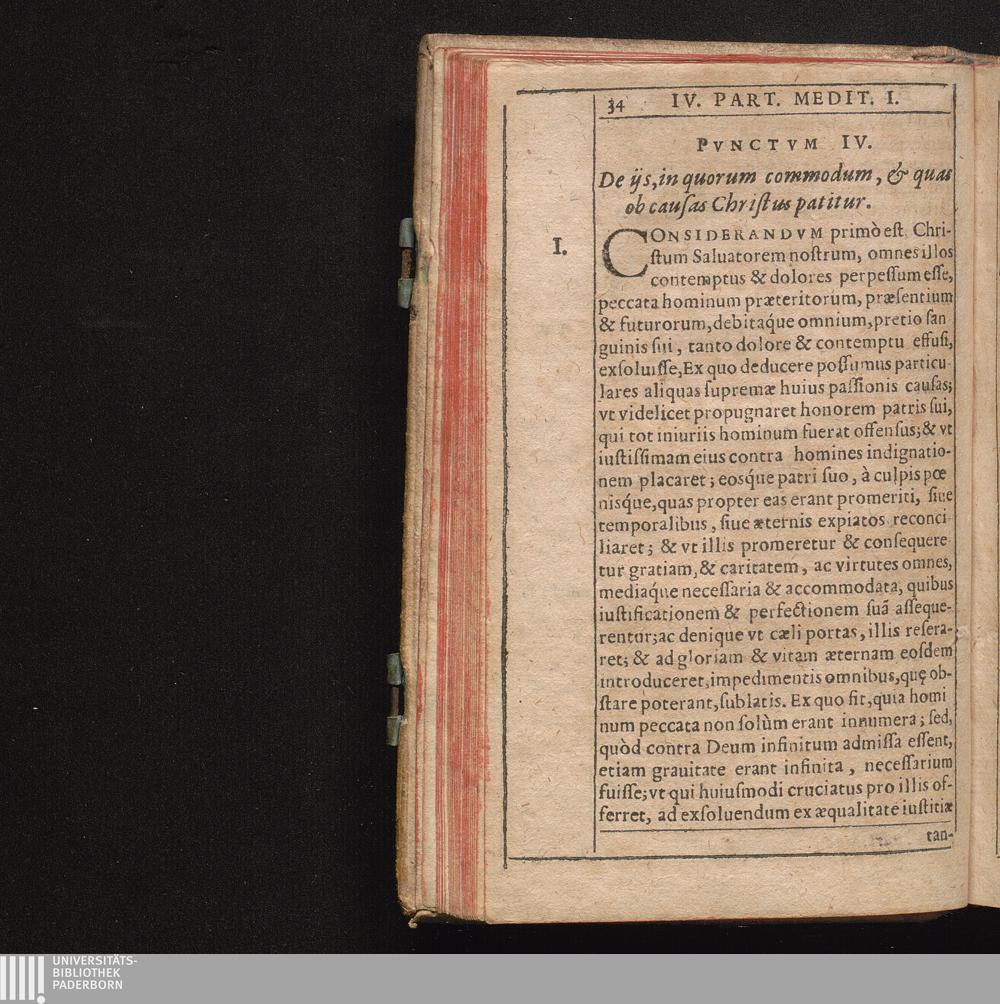 34 IV. PART. MEDIT. I.
PVNCTVM IV.
De ijs, in quorum commodum, & quas
ob cauſas Chriſtus patitur.
I.
CONSIDERANDVM primò eſt Chri-
ſtum Saluatorem noſtrum, omnes illos
contemptus & dolores perpeſſum eſſe,
peccata hominum præteritorum, præſentium
& futurorum, debitaq́ue omnium, pretio ſan
guinis ſui, tanto dolore & contemptu effuſi,
exſoluiſſe, Ex quo deducere poſſumus particu
lares aliquas ſupremæ huius paſſionis cauſas;
vt videlicet propugnaret honorem patris ſui,
qui tot iniuriis hominum fuerat offenſus; & vt
iuſtiſſimam eius contra homines indignatio-
nem placaret; eosq́ue patri ſuo, à culpis pœ
nisq́ue, quas propter eas erant promeriti, ſiue
temporalibus, ſiue æternis expiatos reconci
liaret; & vt illis promeretur & conſequere
tur gratiam, & caritatem, ac virtutes omnes,
mediaq́ue neceſſaria & accommodata, quibus
iuſtificationem & perfectionem ſuã aſſeque-
rentur; ac denique vt cæli portas, illis reſera-
ret; & ad gloriam & vitam æternam eoſdem
introduceret, impedimentis omnibus, quę ob-
ſtare poterant, ſublatis. Ex quo fit, quia homi
num peccata non ſolùm erant innumera; ſed,
quòd contra Deum infinitum admiſſa eſſent,
etiam grauitate erant infinita, neceſſarium
fuiſſe; vt qui huiuſmodi cruciatus pro illis of-
ferret, ad exſoluendum ex æqualitate iuſtitiæ
tan-
UNIVERSITÄTS-
BIBLIOTHEK
PADERBORN